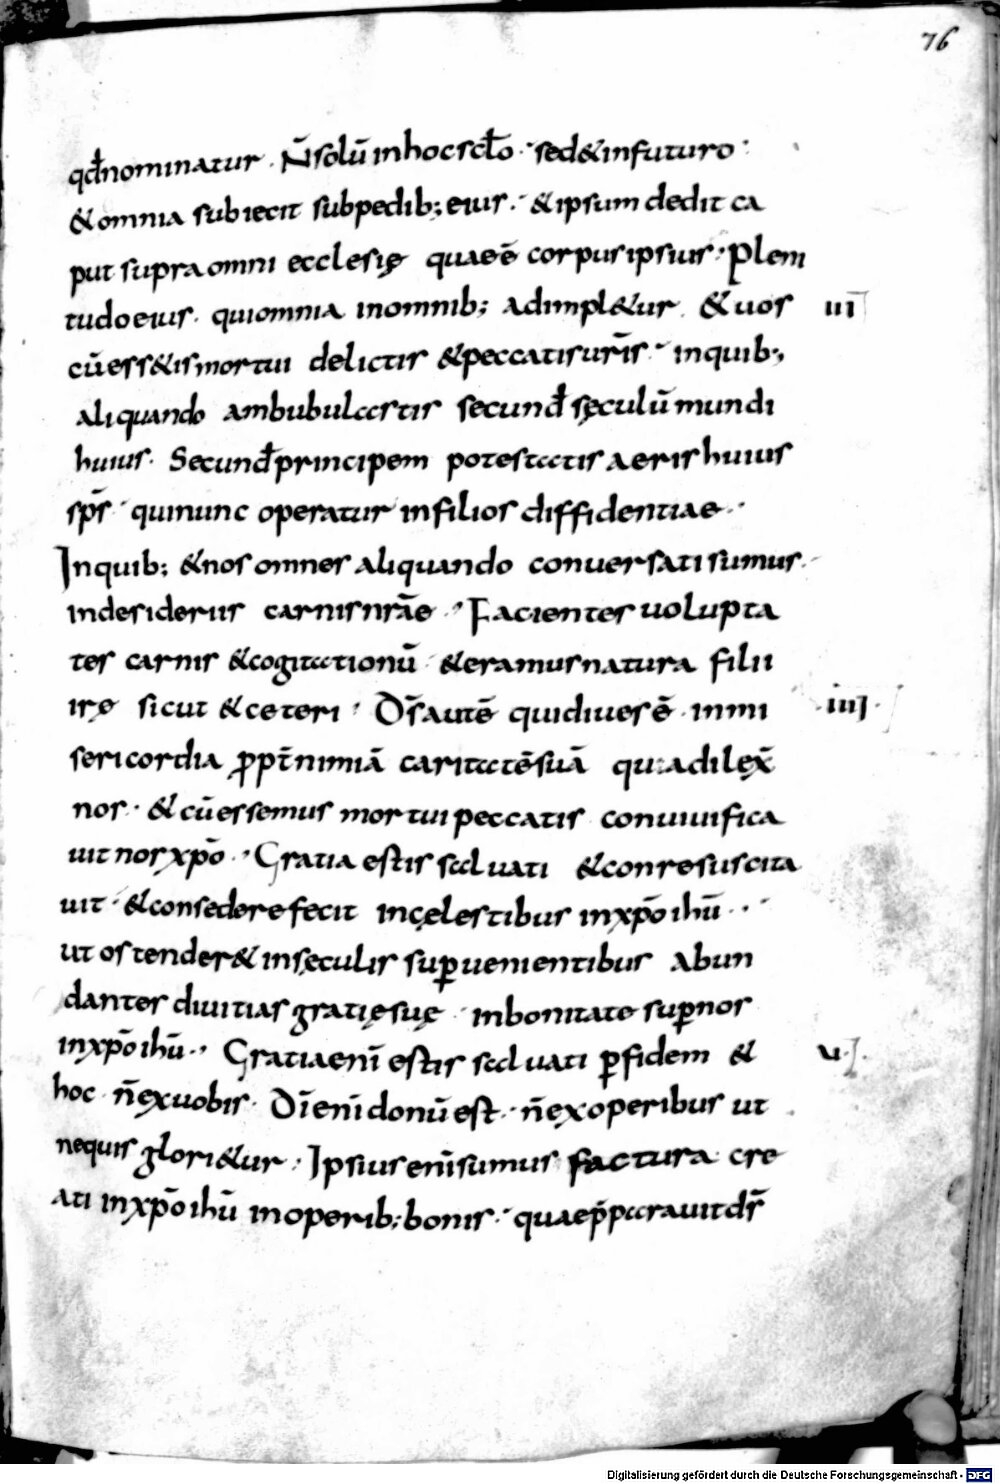 76
qđnominatur. N̄solū inhocscł̄o. sed&infuturo
&omnia subiecit subpedib; eius. &ipsum dedit ca
put supra omni ecclesię quaeē corpus ipsius. Pleni
tudo eius. qui omnia inomnib; adimpl&ur. &uos III
cū ess&is mortui delictis &peccatis ur̄is inquib;
aliquando ambubulastis secund̄ sęculū mundi
huius. Secund̄ principem potestatis aeris huius
sp̄s quinunc operatur infilios diffidentiae.
Inquib; &nos omnes aliquando conuersati sumus.
indesideriis carnis nr̄ae. Facientes uolupta
tes carnis &cogitationū &eramus natura filii
irę sicut &ceteri. D̄s autē quidiues ē inmi IIII
sericordia ꝓpt̄ nimiā caritatē suā qua dilex̄
nos. &cū essemus mortui peccatis conuiuifica
uit nos xp̄o. Gratia estis saluati &conresuscita
uit &consedere fecit incęlestibus inxp̄o ihū.
ut ostender& insęculis suꝑuenientibus abun
dantes diuitias gratię suę inbonitate suꝑ nos
inxp̄o ihū. Gratia enī estis saluati ꝑfidem & V
hoc n̄ exuobis. Dī enī donū est. n̄ exoperibus ut
nequis glori&ur. Ipsius enī sumus factura cre
ati inxp̄o ihū inoperib; bonis. quae p̄parauit d̄s
Digitalisierung gefördert durch die Deutsche Forschungsgemeinschaft - DFG